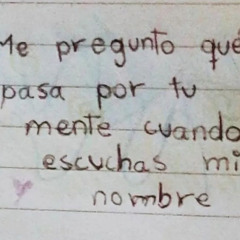 Me pregunto qué
pasa por tu
mente cuando
escuchas mi
nombre